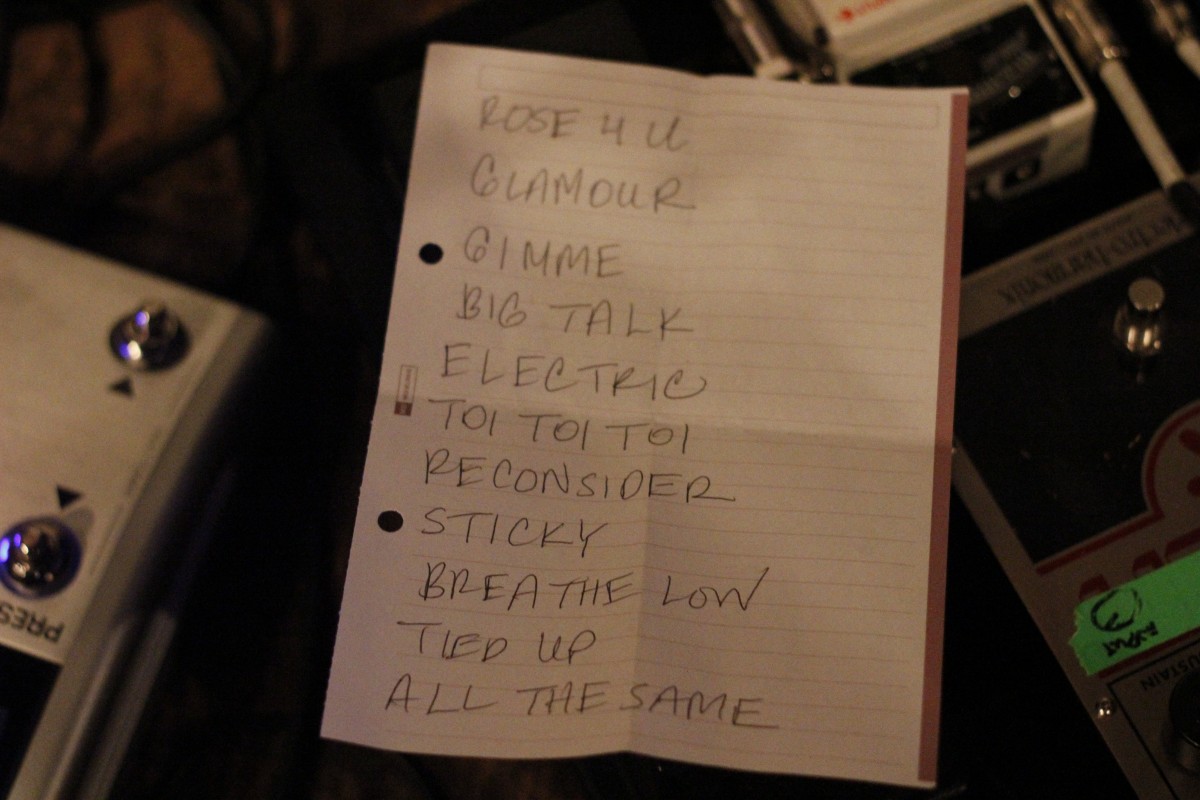 ROSE 4 U
GLAMOUR
GIMME
BIG TALK
ELECTRIC
TOI TOI TOI
RECONSIDER
STICKY
BREATHE LOW
TIED UP
ALL THE SAME
PRES
electro-harmonix
INPUT
SUSTAIN